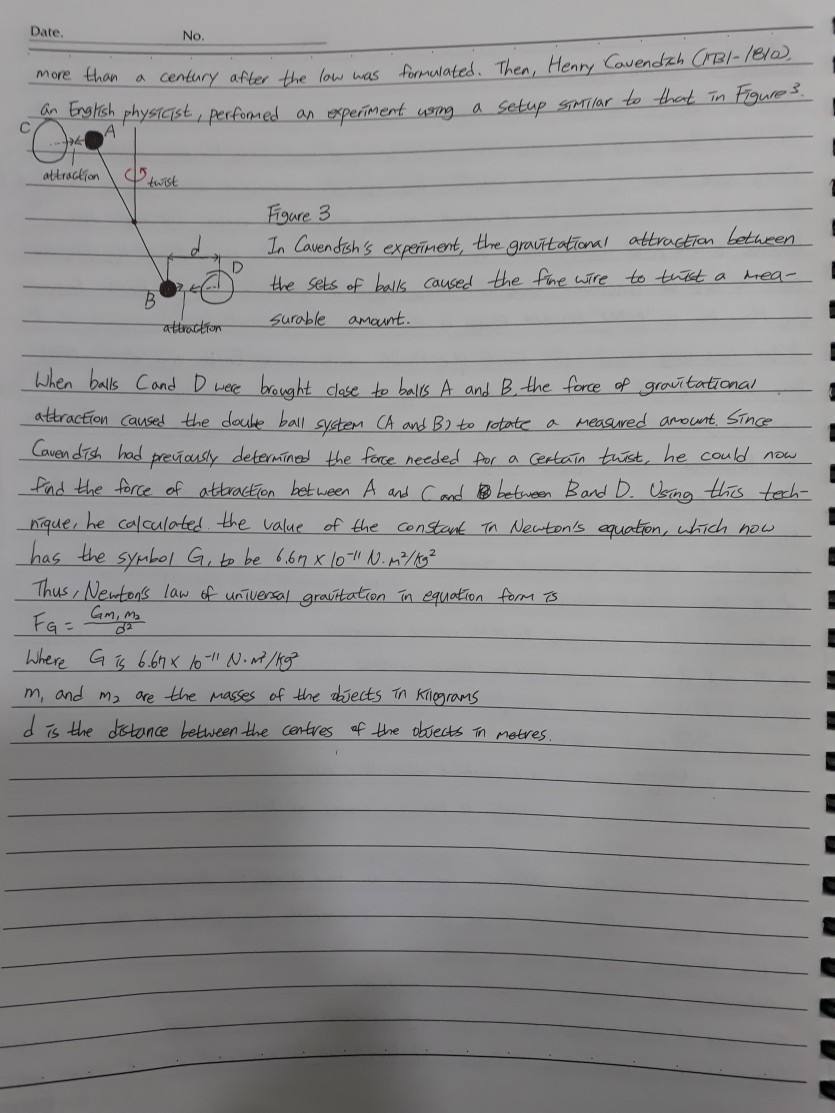 Date. No.
more than a century after the law was formulated. Then, Henry Cavendish (1731-1810),
an English physicist, performed an experiment using a setup similar to that in Figure 3.
C A
attraction twist
Figure 3
d In Cavendish's experiment, the gravitational attraction between
D
B the sets of balls caused the fine wire to twist a mea-
attraction surable amount.
When balls C and D were brought close to balls A and B, the force of gravitational
attraction caused the double ball system (A and B) to rotate a measured amount. Since
Cavendish had previously determined the force needed for a certain twist, he could now
find the force of attraction between A and C and between B and D. Using this tech-
nique, he calculated the value of the constant in Newton's equation, which now
has the symbol G, to be 6.67 × 10⁻¹¹ N·m²/kg²
Thus, Newton's law of universal gravitation in equation form is
F_G = Gm₁m₂/d²
Where G is 6.67 × 10⁻¹¹ N·m²/kg²
m₁ and m₂ are the masses of the objects in kilograms
d is the distance between the centres of the objects in metres.